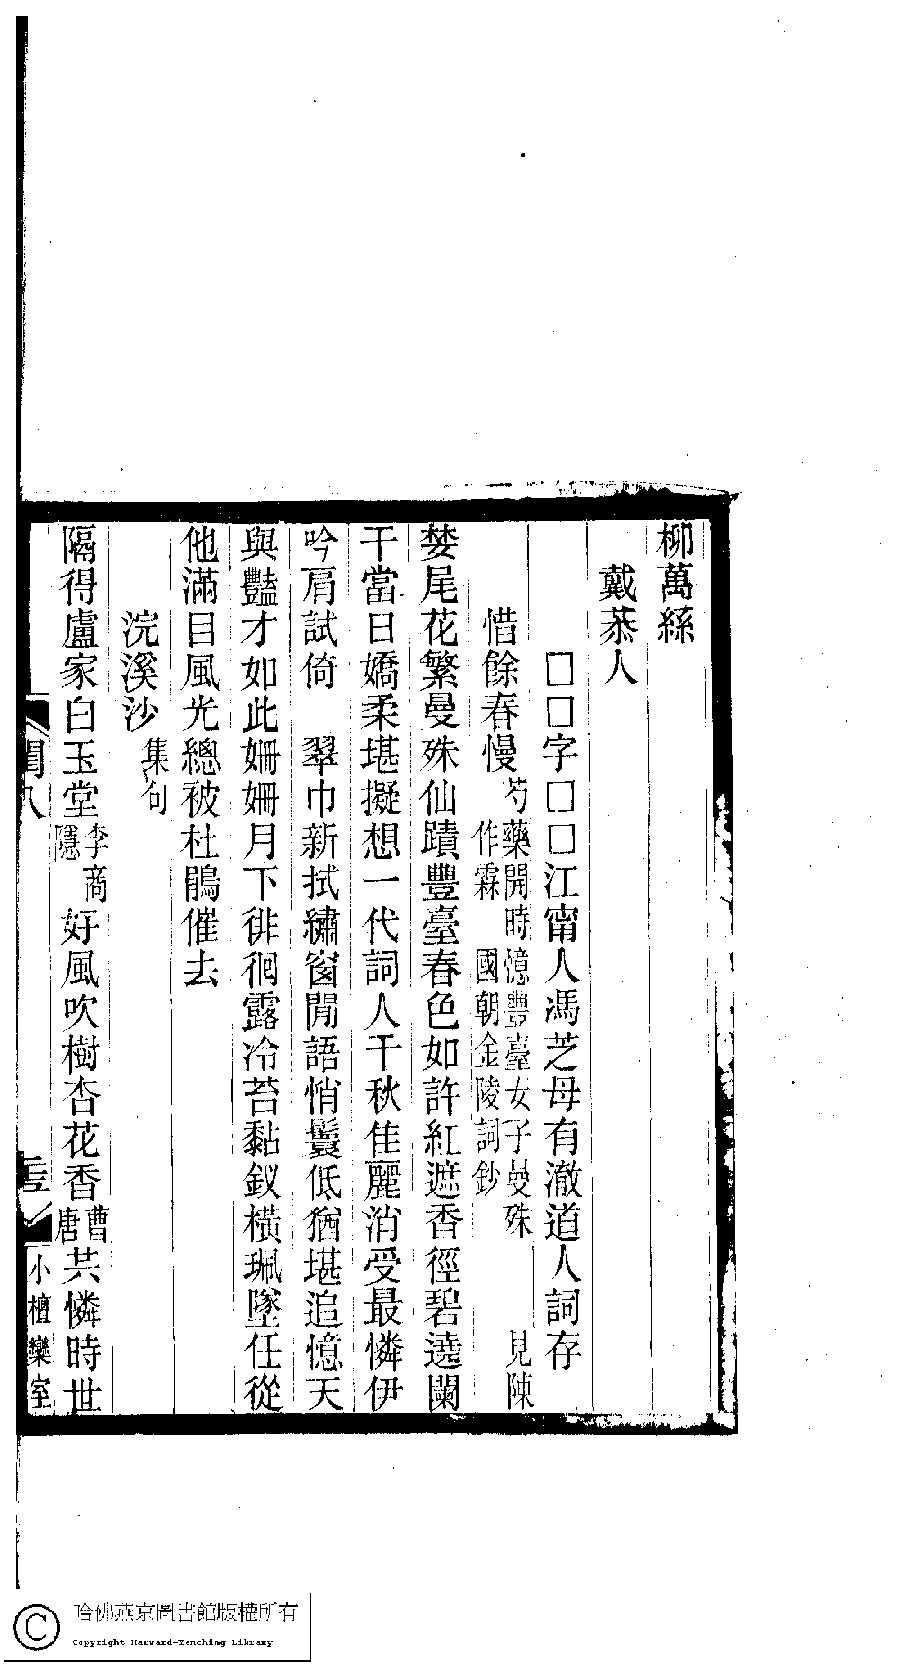 柳萬絲
戴菾人
□□字□□江甯人馮芝母有澈道人詞存
惜餘春慢 芍藥開時憶豐臺女子曼殊 見陳作霖 國朝金陵詞鈔
婪尾花繁曼殊仙蹟豐臺春色如許紅遮香徑碧遶闌
干當日嬌柔堪擬想一代詞人千秋佳麗消受最憐伊
吟肩試倚 翠巾新拭繡窗閒語悄鬟低猶堪追憶天
與豔才如此姍姍月下徘徊露冷苔黏釵橫珮墜任從
他滿目風光總被杜鵑催去
浣溪沙 集句
隔得盧家白玉堂 李商隱 好風吹樹杏花香 曹唐 共憐時世
閨八
小檀欒室
哈佛燕京圖書館版權所有
Copyright Harvard-Yenching Library